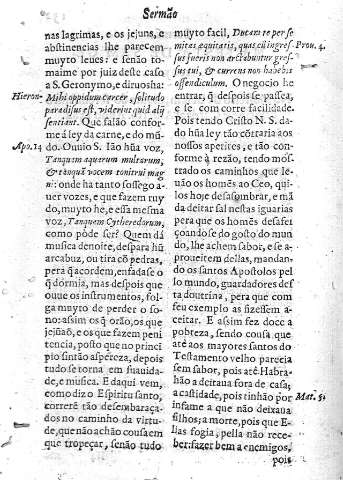 Sermão
nas lagrimas, e os jejuns, e
abstinencias lhe parecem
muyto leues: e senão to-
maime por juiz deste caso
a S. Geronymo, e diruosha:
Hieron.
Mihi oppidum carcer, solitudo
paradisus est, viderint quid alij
sentiant. Que salão confor-
me á ley da carne, e do mũ-
do. Ouuio S. Ião hũa voz,
Apo. 14
Tanquam aquarum multarum,
& tanquã vocem tonitrui mag
ni: onde ha tanto sossego a-
uer vozes, e que fazem ruy
do, muyto he, e essa mesma
voz, Tanquam Cytharedorum,
como póde ser? Quem dá
musica denoite, despara hũ
arcabuz, ou tira cõ pedras,
pera q̃ acordem, enfadase o
q̃ dormia, mas despois que
ouue os instrumentos, fol-
ga muyto de perder o so-
no: assim os q̃ orão, os que
jejũaõ, e os que fazem peni
tencia, posto que no princi
pio sintão aspereza, depois
tudo se torna em suauida-
de, e musica. E daqui vem,
como dizo Espiritu santo,
correrẽ tão desembaraça-
dos no caminho da virtu-
de, que não achão cousa em
que tropeçar, senão tudo
muyto facil, Ducam te per se
mitas æquitatis, quas cũ ingres-
Prou. 4.
sus fueris non arctabuntur gres-
sus tui, & currens non habebis
offendiculum. O negocio he
entrar, q̃ despois se passea,
e se com corre facilidade.
Pois tendo Cristo N. S. da-
do hũa ley tão cõtraria aos
nossos apetites, e tão con-
forme à rezão, tendo mos-
trado os caminhos que le-
uão os homẽs ao Ceo, qui-
los hoje desasombrar, e mã
da deitar sal nestas iguarias
pera que os homẽs desafei
çoandose do gosto do mun
do, lhe achem sabor, e se a-
proueitem dellas, mandan-
do os santos Apostolos pel
lo mundo, guardadores des
ta doutrina, pera que com
seu exemplo as fizessem a-
ceitar. E assim fez doce a
pobreza, sendo cousa que
até aos mayores santos do
Testamento velho parecia
sem sabor, pois até Habra-
hão a deitaua fora de casa;
a castidade, pois tinhão por
Mat. 5.
infame a que não deixaua
filhos; a morte, pois que E-
lias fogia, pella não rece-
ber: fazer bem a enemigos,
pois